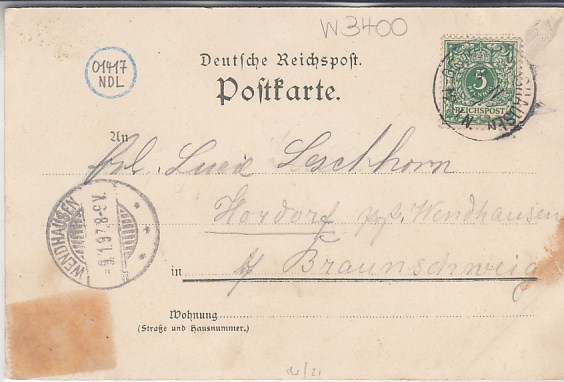 W3400
01417
NDL
Deutsche Reichspost.
Postkarte.
5
PFENNIG
REICHSPOST
HAUSEN
An
Frl. Lucie Leschhorn
Hordorf p/p. Wendhausen
WENDHAUSEN
9.1.97. 8-9V.
in
b/ Braunschweig
Wohnung
(Straße und Hausnummer.)